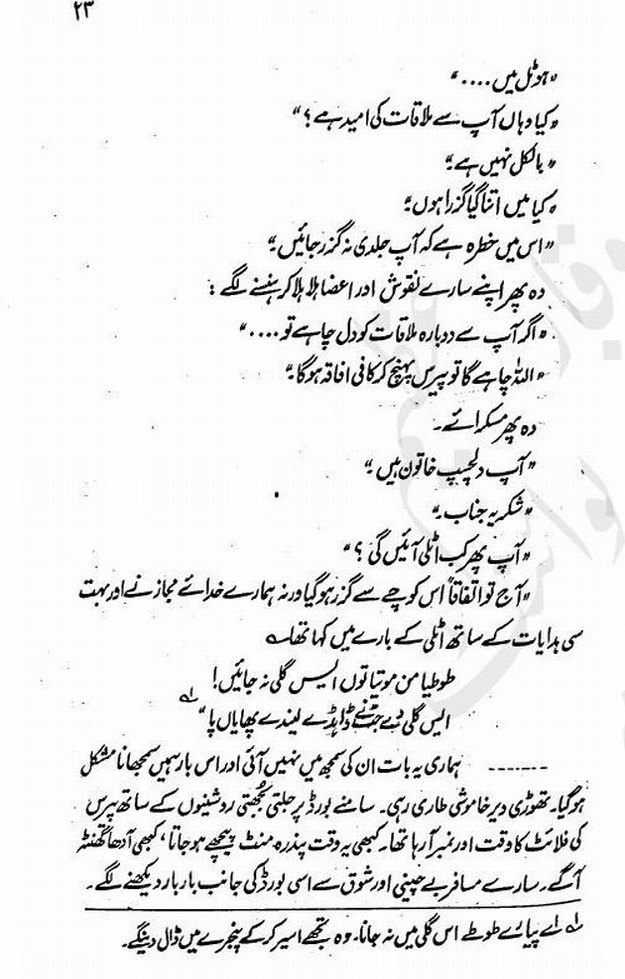 ۲۳
"ہوٹل میں ...."
"کیا وہاں آپ سے ملاقات کی امید ہے؟"
"بالکل نہیں ہے۔"
"کیا میں اتنا گیا گزرا ہوں۔"
"اس میں خطرہ ہے کہ آپ جلدی نہ گزر جائیں۔"
وہ پھر اپنے سارے نقوش اور اعضا ہلا ہلا کر ہنسنے لگے :
"اگر آپ سے دوبارہ ملاقات کو دل چاہے تو ...."
"اللہ چاہے گا تو پیرس پہنچ کر کافی افاقہ ہوگا۔"
وہ پھر مسکرائے۔
"آپ دلچسپ خاتون ہیں۔"
"شکریہ جناب۔"
"آپ پھر کب اٹلی آئیں گی؟"
"آج تو اتفاقاً اس کوچے سے گزر ہوگیا ورنہ ہمارے خدائے مجاز نے اور بہت
سی ہدایات کے ساتھ اٹلی کے بارے میں کہا تھا ؎
طوطیا من موتیا توں ایس گلی نہ جائیں!
ایس گلی دے جٹ نے ڈاہڈے لیندے پھایاں پا" ؂۱
------- ہماری یہ بات ان کی سمجھ میں نہیں آئی اور اس بار ہمیں سمجھانا مشکل
ہوگیا۔ تھوڑی دیر خاموشی طاری رہی۔ سامنے بورڈ پر جلتی بُجھتی روشنیوں کے ساتھ پیرس
کی فلائٹ کا وقت اور نمبر آ رہا تھا۔ کبھی یہ وقت پندرہ منٹ پیچھے ہوجاتا، کبھی آدھا گھنٹہ
آگے۔ سارے مسافر بے چینی اور شوق سے اسی بورڈ کی جانب بار بار دیکھنے لگے۔
؂۱ اے پیارے طوطے اس گلی میں نہ جانا۔ وہ تجھے اسیر کرکے پنجرے میں ڈال دینگے۔